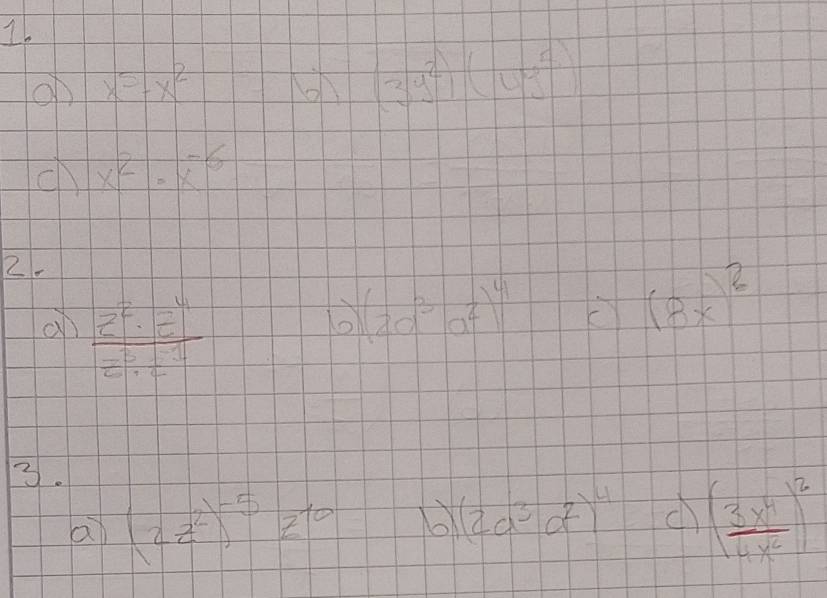 1.
a) x⁵ · x² b) (3y²)(4y⁵)
c) x² · x⁻⁶
2.
a) z² · z⁴ / z³ · z⁻¹ b) (2a³ a²)⁴ c) (8x)²
3.
a) (2z²)⁻⁵ z¹⁰ b) (2a³ a²)⁴ c) (3x⁴ / 4x²)²